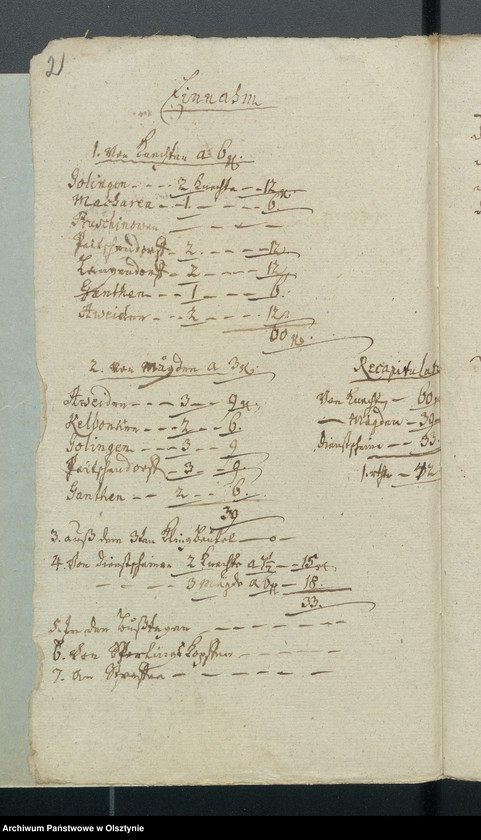 21
Einnahm
1. Von Knechten a 6 gl.
Golingen - - - 2 Knechte - - 12 gl
Macharen - - 1 - - - - 6.
Ruschinowen - - - -
Peitschendorff - 2 - - - - 12.
Langendorff - 2 - - - - 12
Ganthen - - 1 - - - - 6.
Aweiden - - 2 - - - - 12
60 gl.
2. von Mägden a 3 gl.
Aweiden - - 3 - - 9 gl.
Kelbonken - - 2 - - 6.
Golingen - - 3 - - 9
Peitschendorff - 3 - - 9.
Ganthen - - 2 - - 6.
39
3. auß dem 3ten Klingbeutel - o -
4. Von Dienstscheinen 2 Knechte a 7 1/2 - 15 gl
- - - 3 Mägde a 6 gl - 18.
33.
5. In den Bußtagen - - - - - -
6. Von Sperlings Köpffen - - - - -
7. An Straffen - - - - - -
Recapitulat
Von Knecht - 60
- Mägden - 39
Dienstscheine - - 33.
1 rthl - 42
Archiwum Państwowe w Olsztynie